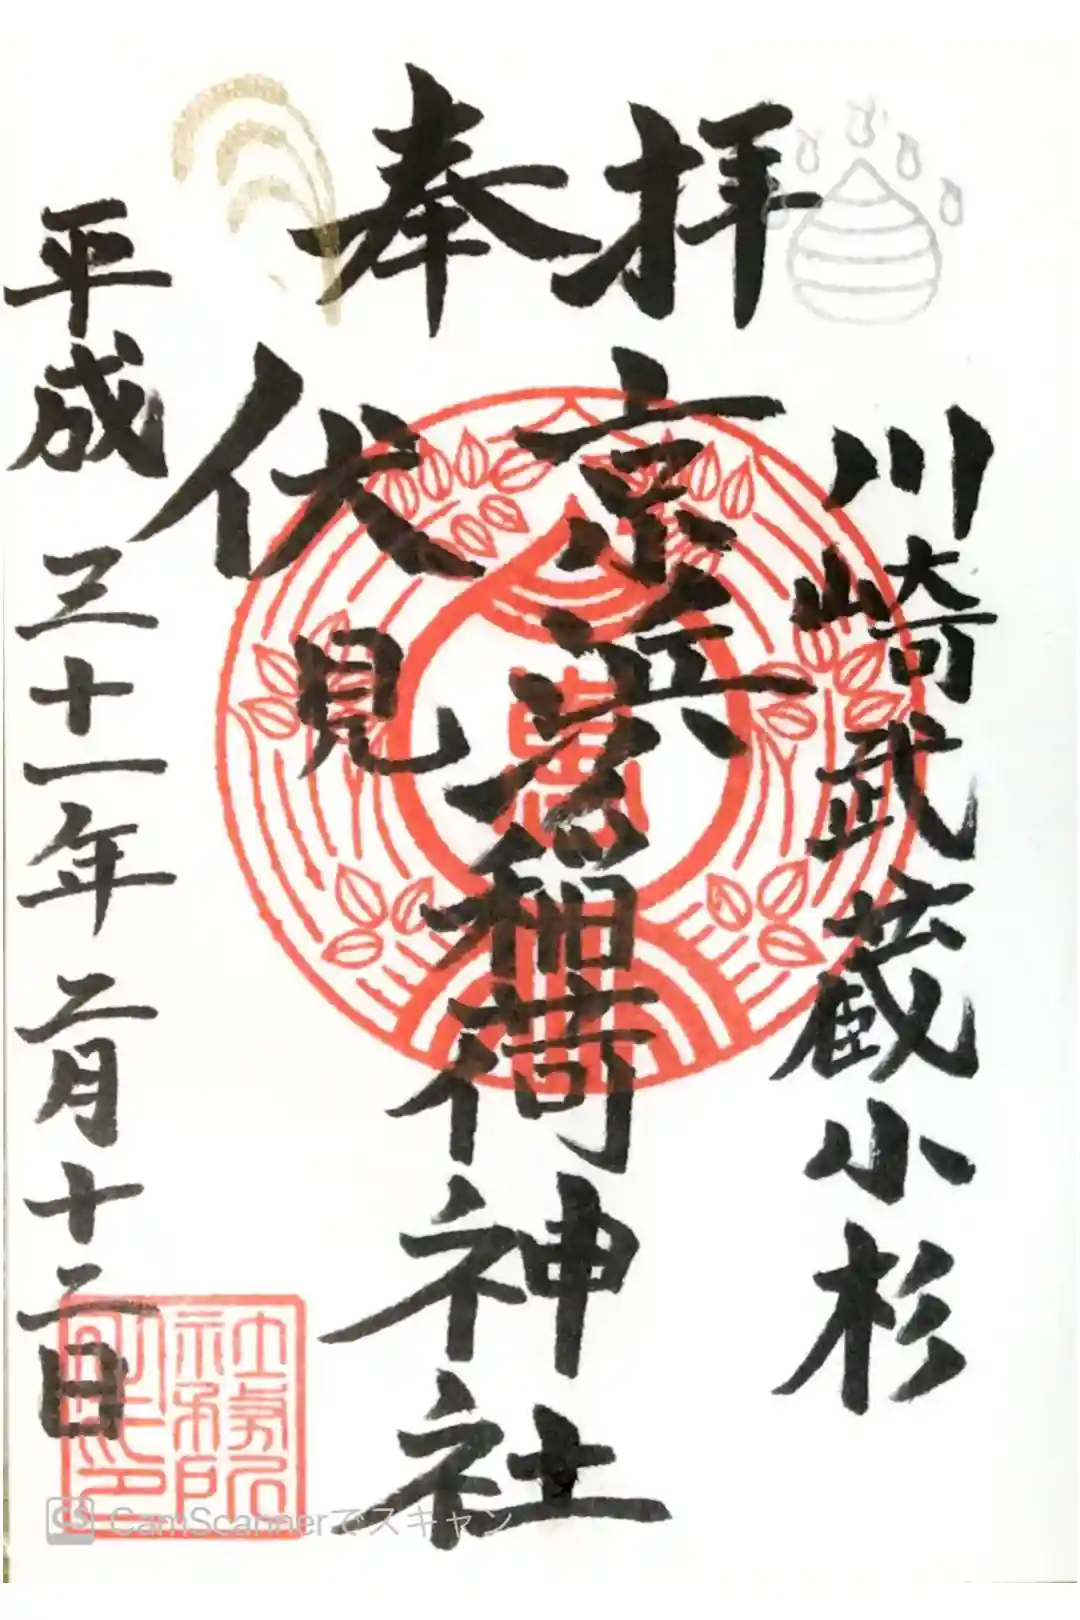 奉拝
川崎武蔵小杉
京濱
伏見稲荷神社
平成三十一年二月十二日
CS CamScannerでスキャン